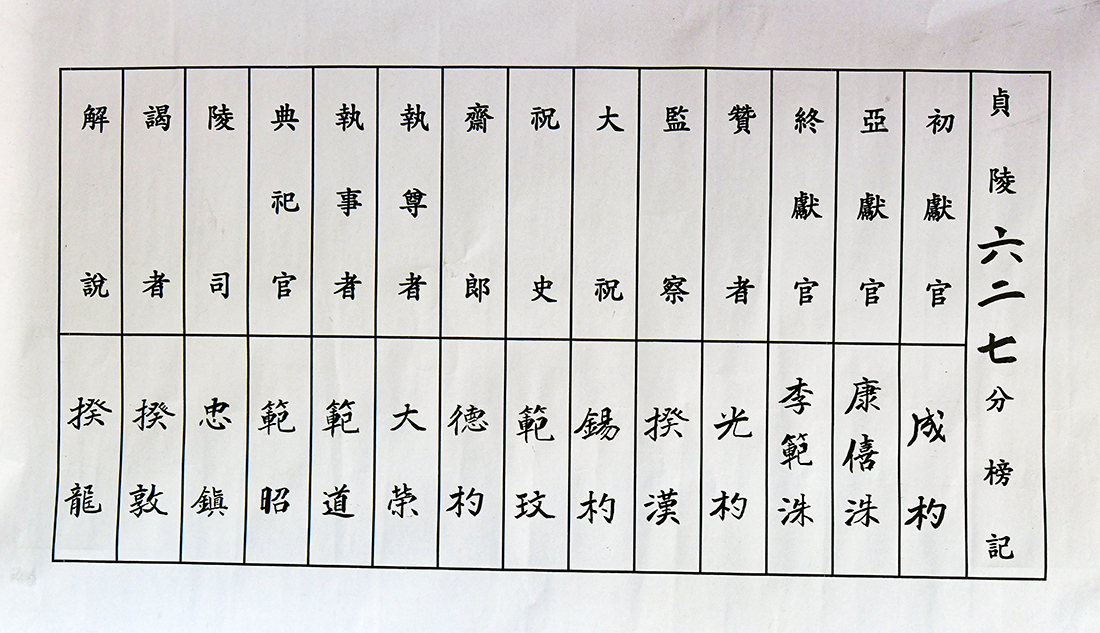 貞陵六二七分榜記
初獻官 成杓
亞獻官 康僖洙
終獻官 李範洙
贊者 光杓
監察 揆漢
大祝 錫杓
祝史 範玟
齋郞 德杓
執尊者 大榮
執事者 範道
典祀官 範昭
陵司 忠鎭
謁者 揆敦
解說 揆龍